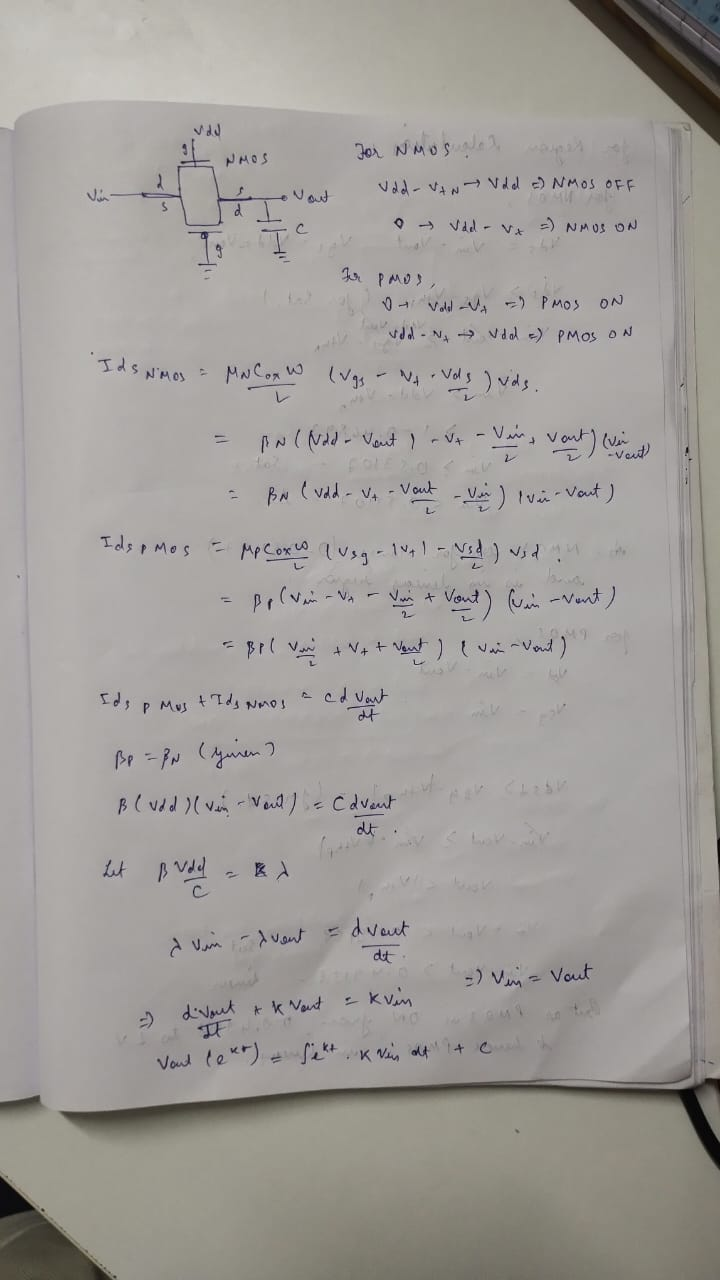 Vdd
g
NMOS
Vin
d
s
s
d
Vout
C
g
For NMOS,
Vdd - VtN → Vdd => NMOS OFF
0 → Vdd - Vt => NMOS ON
For PMOS,
0 → Vdd - Vt => PMOS ON
Vdd - Vt → Vdd => PMOS ON
Ids NMOS = MN Cox W / L (Vgs - Vt - Vds/2) Vds.
= βN ((Vdd - Vout) - Vt - Vin/2 + Vout/2) (Vin - Vout)
= βN (Vdd - Vt - Vout/2 - Vin/2) (Vin - Vout)
Ids PMOS = Mp Cox W / L (Vsg - |Vt| - Vsd/2) Vsd.
= βp (Vin - Vt - Vin/2 + Vout/2) (Vin - Vout)
= βp (Vin/2 + Vt + Vout/2) (Vin - Vout)
Ids PMOS + Ids NMOS = C dVout/dt
βp = βN (given)
β (Vdd) (Vin - Vout) = C dVout/dt.
Let β Vdd/C = λ
λ Vin - λ Vout = dVout/dt.
=> Vin = Vout
=> dVout/dt + k Vout = k Vin
Vout (e^kt) = ∫e^kt . k Vin dt + C